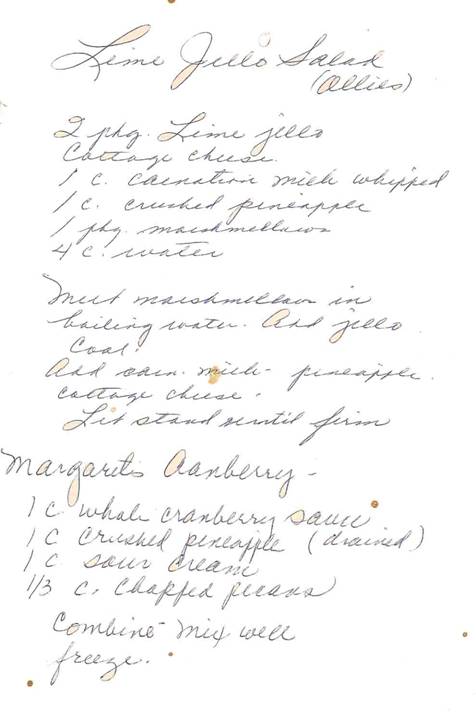 Lime Jello Salad
(Ollies)
2 pkg. Lime jello
Cottage cheese.
1 c. carnation milk whipped
1 c. crushed pineapple
1 pkg. marshmellows
4 c. water
Melt marshmellows in
boiling water. Add jello
Cool.
Add carn. milk - pineapple.
cottage cheese.
Let stand until firm
Margarets Canberry -
1 c whole cranberry sauce
1 c crushed pineapple (drained)
1 c sour cream
1/3 c. chopped pecans
Combine - mix well
freeze.